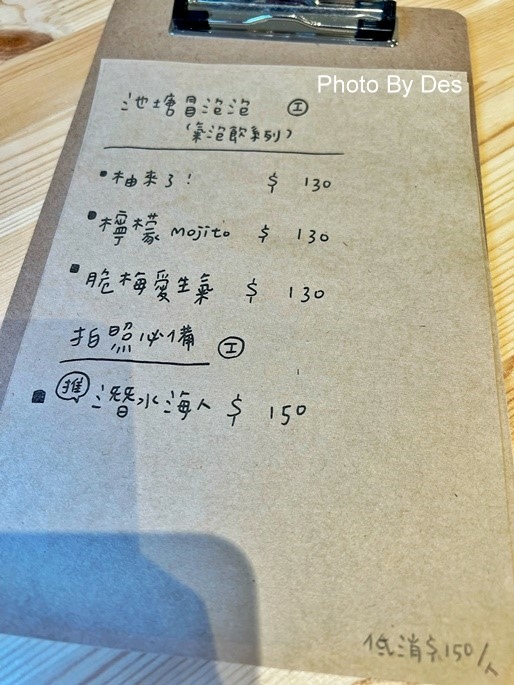 Photo By Des
池塘冒泡泡 工
(氣泡飲系列)
柚來了! $ 130
檸檬 mojito $ 130
脆梅愛生氣 $ 130
拍照必備 工
推 潛水海人 $ 150
低消$150/人